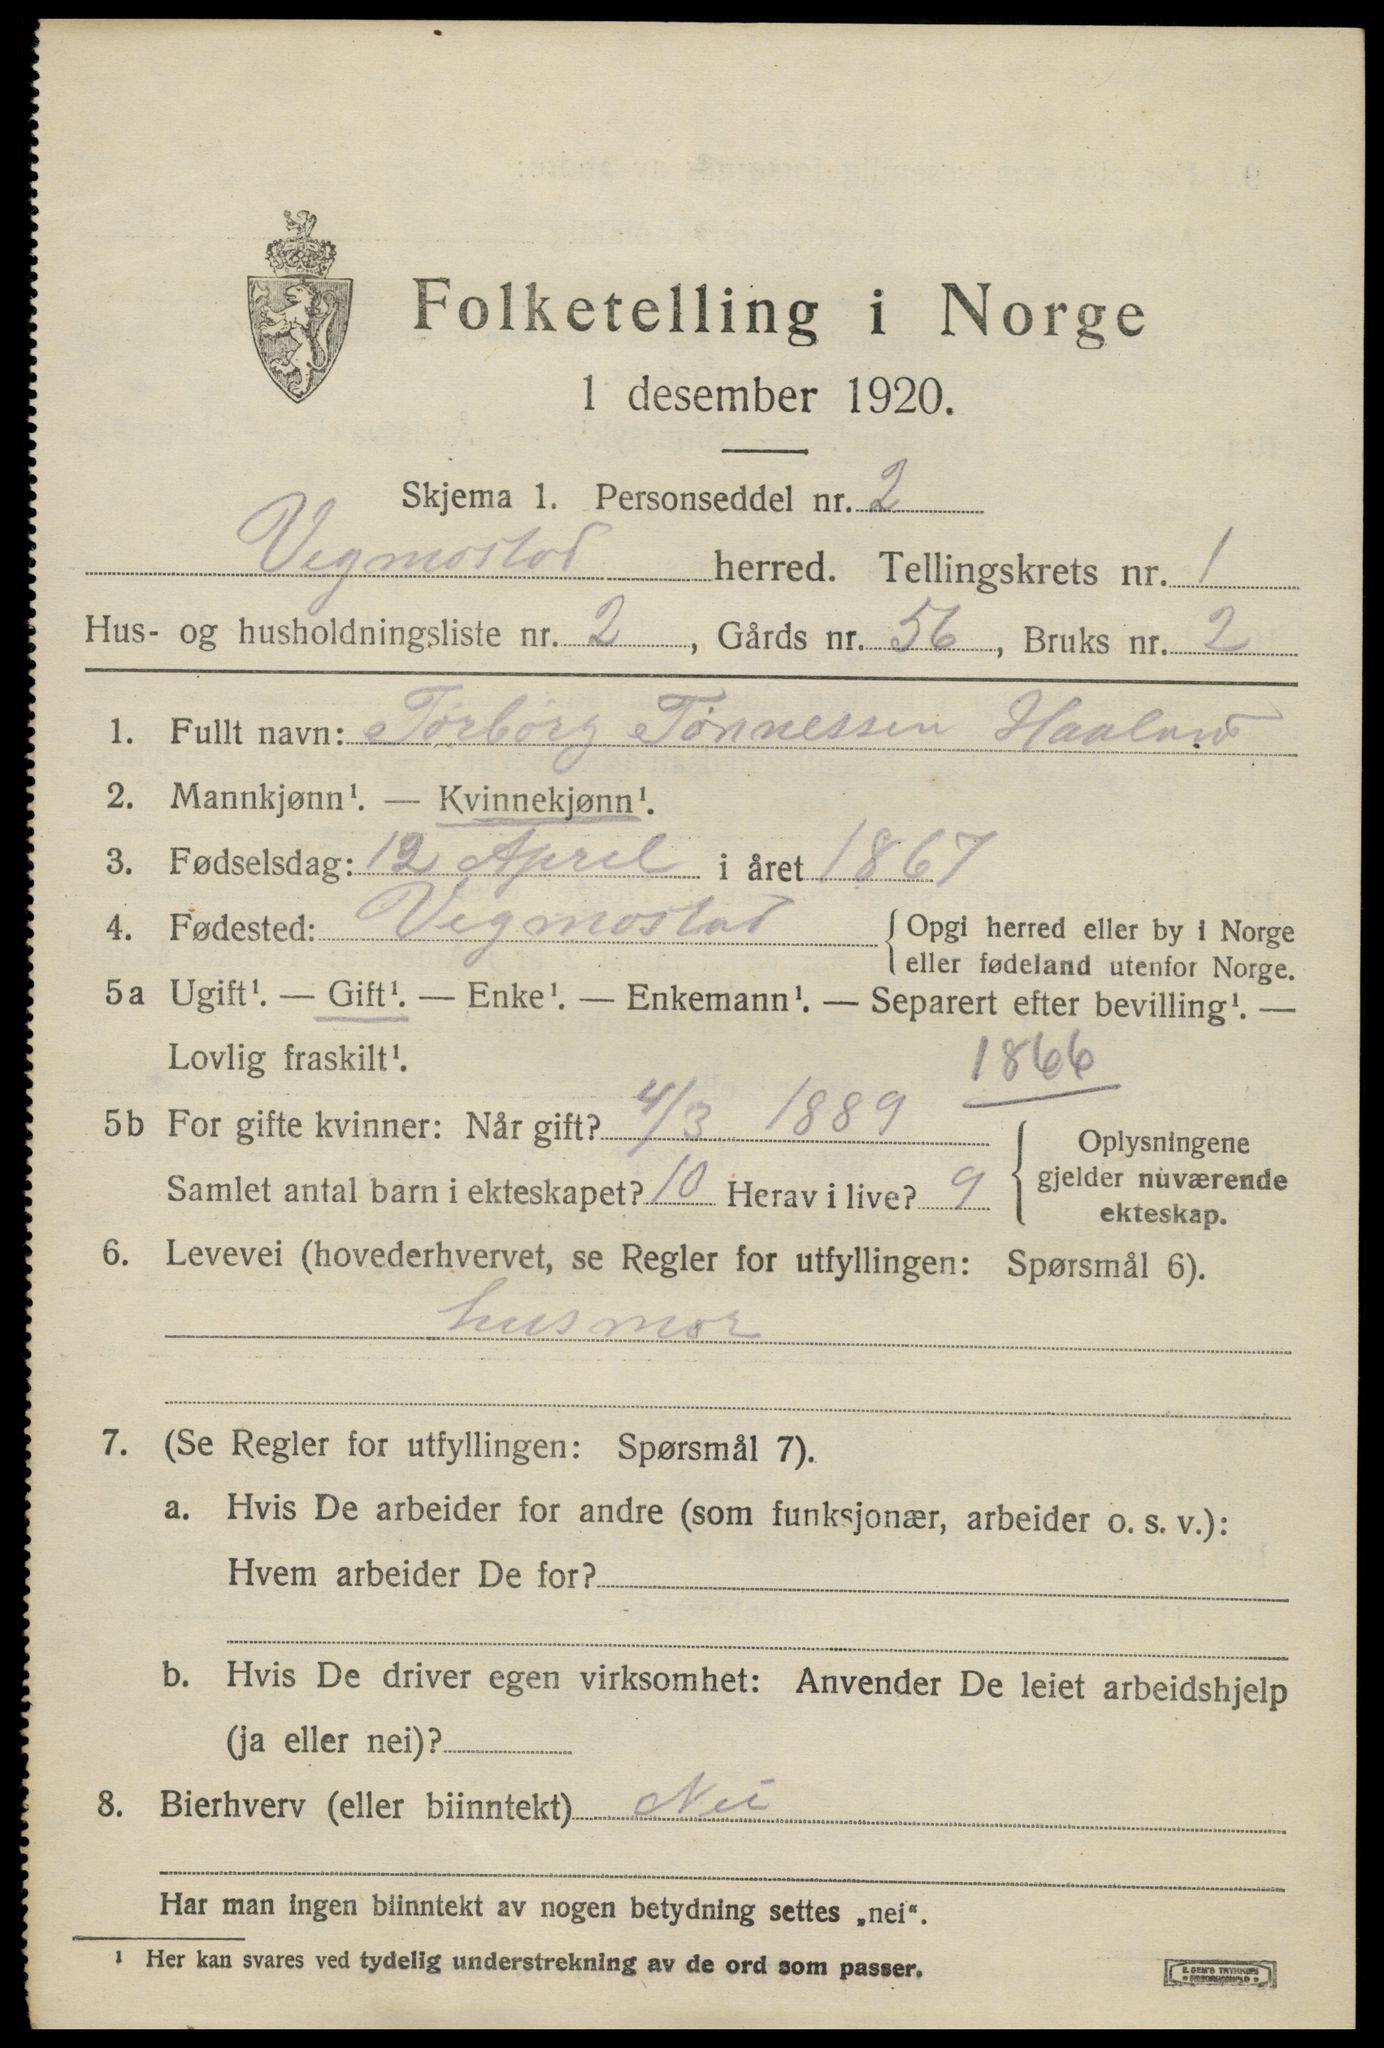 Folketelling i Norge
1 desember 1920.
Skjema 1. Personseddel nr. 2
Vegmostad herred. Tellingskrets nr. 1
Hus- og husholdningsliste nr. 2, Gårds nr. 56, Bruks nr. 2
1. Fullt navn: Torborg Tønnessen Haaland
2. Mannkjønn¹. — Kvinnekjønn¹.
3. Fødselsdag: 12 April i året 1867
4. Fødested: Vegmostad {Opgi herred eller by i Norge
eller fødeland utenfor Norge.
5a Ugift¹. — Gift¹. — Enke¹. — Enkemann¹. — Separert efter bevilling¹. —
Lovlig fraskilt¹. 1866
5b For gifte kvinner: Når gift? 4/3 1889
Samlet antal barn i ekteskapet? 10 Herav i live? 9
{Oplysningene
gjelder nuværende
ekteskap.
6. Levevei (hovederhvervet, se Regler for utfyllingen: Spørsmål 6).
husmor
7. (Se Regler for utfyllingen: Spørsmål 7).
a. Hvis De arbeider for andre (som funksjonær, arbeider o. s. v.):
Hvem arbeider De for?
b. Hvis De driver egen virksomhet: Anvender De leiet arbeidshjelp
(ja eller nei)?
8. Bierhverv (eller biinntekt) Nei
Har man ingen biinntekt av nogen betydning settes „nei“.
¹ Her kan svares ved tydelig understrekning av de ord som passer.